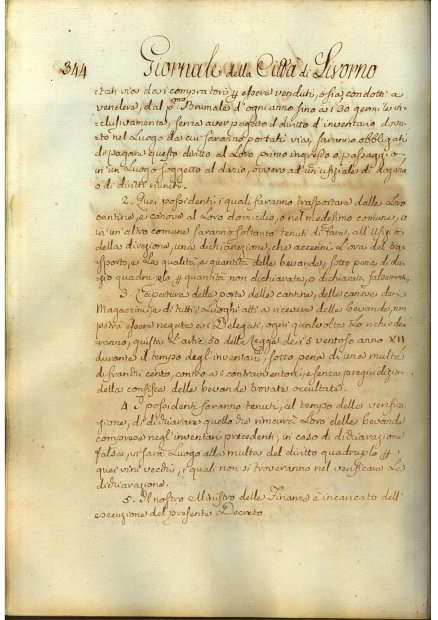 344 Giornale della Città di Livorno
tati via da i compratori p essere venduti, o sia condotti a
vendere, dal pmo Brumale d'ogni anno fino a i 30 germile in-
clusivamente, senza aver pagato il diritto d'inventario dovu-
to nel Luogo da cui saranno portati via, saranno obbligati
di pagare questo diritto al Loro primo ingresso o passaggio
in un Luogo soggetto al dazio, ovvero ad un'uffiziale di dogana
o di diritti riuniti.
2. Quei possidenti i quali faranno trasportare dalle Loro
cantine, e canove al Loro domicilio, o nel medesimo comune, o
in un'altro comune saranno soltanto tenuti di fare, all'Ufizio
della direzione, una dichiarazione, che accenni L'ora del tra-
sporto, e Le qualità, e quantità delle bevande, sotto pena di da-
zio quadruplo p quantità non dichiarata, o dichiarata falsamente,
3. L'apertura delle porte delle cantine, delle canove de i
Magazzini, e di tutti i Luoghi atti a ricevere delle bevande, non
potrà essere negata a i Delegati, ogni qualvolta Lo richiede-
ranno, giusta L'arte 50 della legge de i 5 ventoso anno XII
durante il tempo degl'inventari, sotto pena di una multa
di franchi cento, contro a i contravventori, e senza pregiudizio
della confisca delle bevande trovate occultate.
4. I possidenti saranno tenuti, al tempo della verifica-
zione, di dichiarare quello che rimarrà Loro delle bevande
comprese negl'inventari precedenti; in caso di dichiarazione
falsa, vi sarà Luogo alla multa del diritto quadruplo p
quei vini vecchi, i quali non si troveranno nel verificare La
dichiarazione.
5. Il nostro Ministro delle Finanze è incaricato dell'
esecuzione del presente Decreto